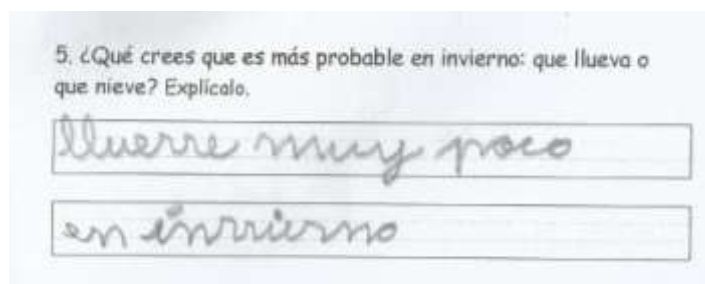 5. ¿Qué crees que es más probable en invierno: que llueva o
que nieve? Explícalo.
llueve muy poco
en invierno